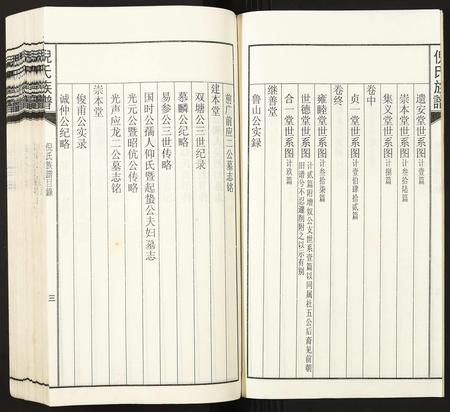 倪氏族譜
遺安堂世系图 计壹篇
崇本堂世系图 计叁拾陆篇
集义堂世系图 计捌篇
卷中
贞一堂世系图 计壹伯肆拾贰篇
卷终
雍睦堂世系图 计叁拾柒篇
世德堂世系图 计贰篇附增叙公支世系壹篇以同属社五公后裔见前朝旧谱兮不忍遽削附之以示有别
合一堂世系图 计玖篇
继善堂
鲁山公实录
前广前应二公墓志铭
建本堂
双塘公三世纪录
慕麟公纪略
易参公三世传略
国时公孺人仰氏暨起蛰公夫妇墓志
光元公暨昭伉公传略
光声应龙二公墓志铭
崇本堂
俊甫公实录
诚仲公纪略
倪氏族譜目録
三
倪氏族譜